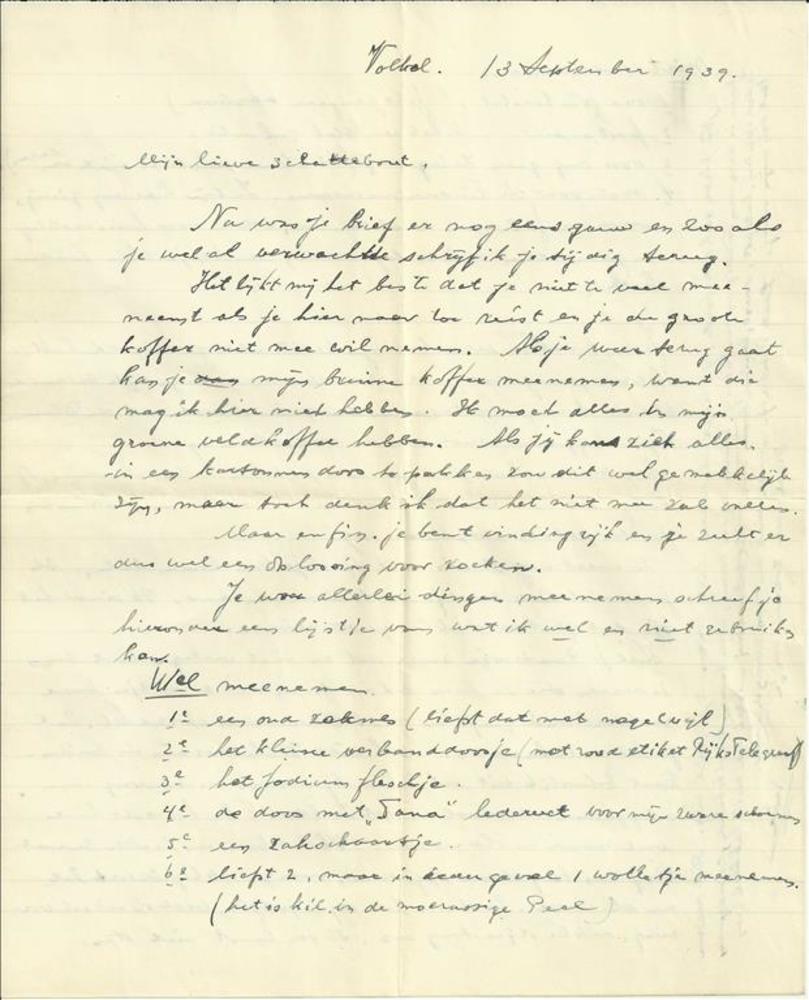 Volkel. 13 September 1939.
Mijn lieve schattebout,
Nu was je brief er nog eens gauw en zooals
je wel al verwachtte schrijf ik je tijdig terug.
Het lijkt mij het beste dat je niet te veel mee-
neemt als je hier naar toe reist en je de groote
koffer niet mee wil nemen. Als je weer terug gaat
kan je mijn bruine koffer meenemen, want die
mag ik hier niet hebben. Ik moet alles in mijn
groene veldkoffer hebben. Als jij kans ziet alles
in een kartonnen doos te pakken zou dit wel gemakkelijk
zijn, maar toch denk ik dat het niet mee zal vallen.
Maar enfin, je bent vindingrijk en je zult er
dus wel een oplossing voor zoeken.
Je wou allerlei dingen meenemen schreef je
hieronder een lijstje van wat ik wel en niet gebruiken
kan.
Wel meenemen.
1e een oud zakmes (liefst dat met nagelvijl)
2e het kleine verbanddoosje (met rood etiket Rijkstelegraaf)
3e het Jodium fleschje.
4e de doos met "Tana" ledervet voor mijn zware schoenen
5e een zakschaartje.
6e liefst 2, maar in ieder geval 1 wolletje meenemen.
(het is kil in de moerassige Peel)